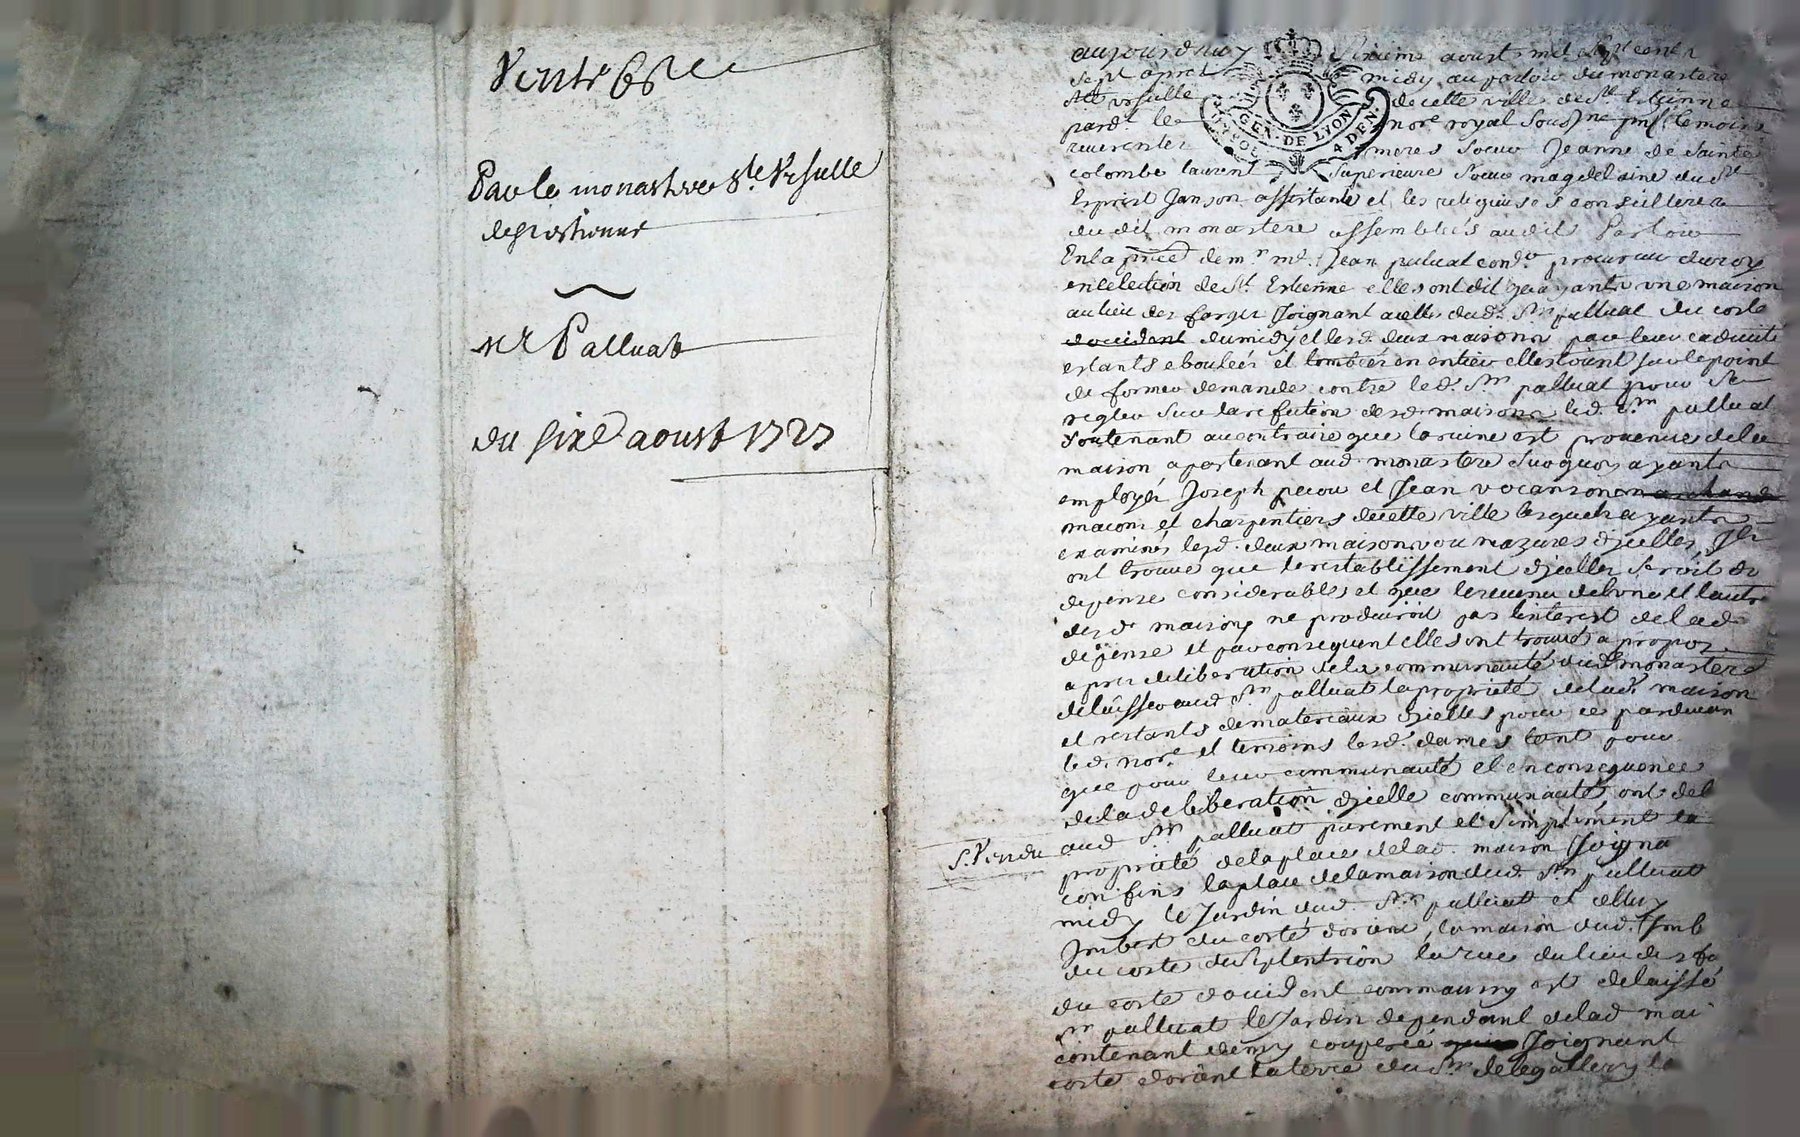 Vente
Par le monastere Ste Vrsulle
de st estienne
Mr Palluat
du sixe aoust 1727
GEN. DE LYON
4 DEN.
aujourdhuy sixieme aoust mil sept cent
sept apres midy au parloir du monastere
Ste vrsulle de cette ville de St Estienne
pardt le nore royal soussne
reverentes meres soeur Jeanne de Sainte
colombe laurent superieure soeur magdelaine du St
Esprist Janson assistante et les religieuses conseilleres
dudit monastere assemblées audit Parloir
En la pnce de mr me Jean palluat conr procureur du roy
en lelection de St Estienne elles ont dit quayants vne maison
au lieu des forges Joignant a celle dud. Sr palluat du costé
doccident du midy et lesd. deux maisons par leur caducité
estants eboulées et tombées en entier elles estoint sur le point
de former demande contre led. Sr palluat pour se
regler sur la refection desd. maisons led. Sr palluat
soutenant au contraire que la ruine est provenue de la
maison apartenant aud. monastere surquoy ayants
employé Joseph pecou et Jean vocanson
macons et charpentiers de cette ville lesquels ayants
examinés lesd. deux maisons ou mazures dycelles Ils
ont trouvé que le restablissement dycelles seroit de
depense considerable et que le revenu de lune et lautre
desd. maisons ne produiroit pas linterest de lad.
depense et par consequent elles ont trouvé a propos
apres deliberation de la communauté dud. monastere
delaisser aud. Sr palluat la proprieté de lad. maison
et restants de materiaux dycelles pour ce pardevan
led. nore et temoins lesd. dames tant pour
que pour leur communauté et en consequence
de la deliberation dycelle communauté ont del
S. Vendu
aud. Sr palluat purement et simplement la
proprieté de la place de lad. maison Joigna
confins la place de la maison dud. Sr palluat
midy le Jardin dud. Sr palluat et celluy
Imbert du costé dorient, la maison dud. Imb
du costé de septentrion la rue du lieu des fo
du costé doccident comme aussy est delaissé
Sr palluat le Jardin dependant de lad. mai
contenant demy couperée Joignant
costé dorient la terre du Sr